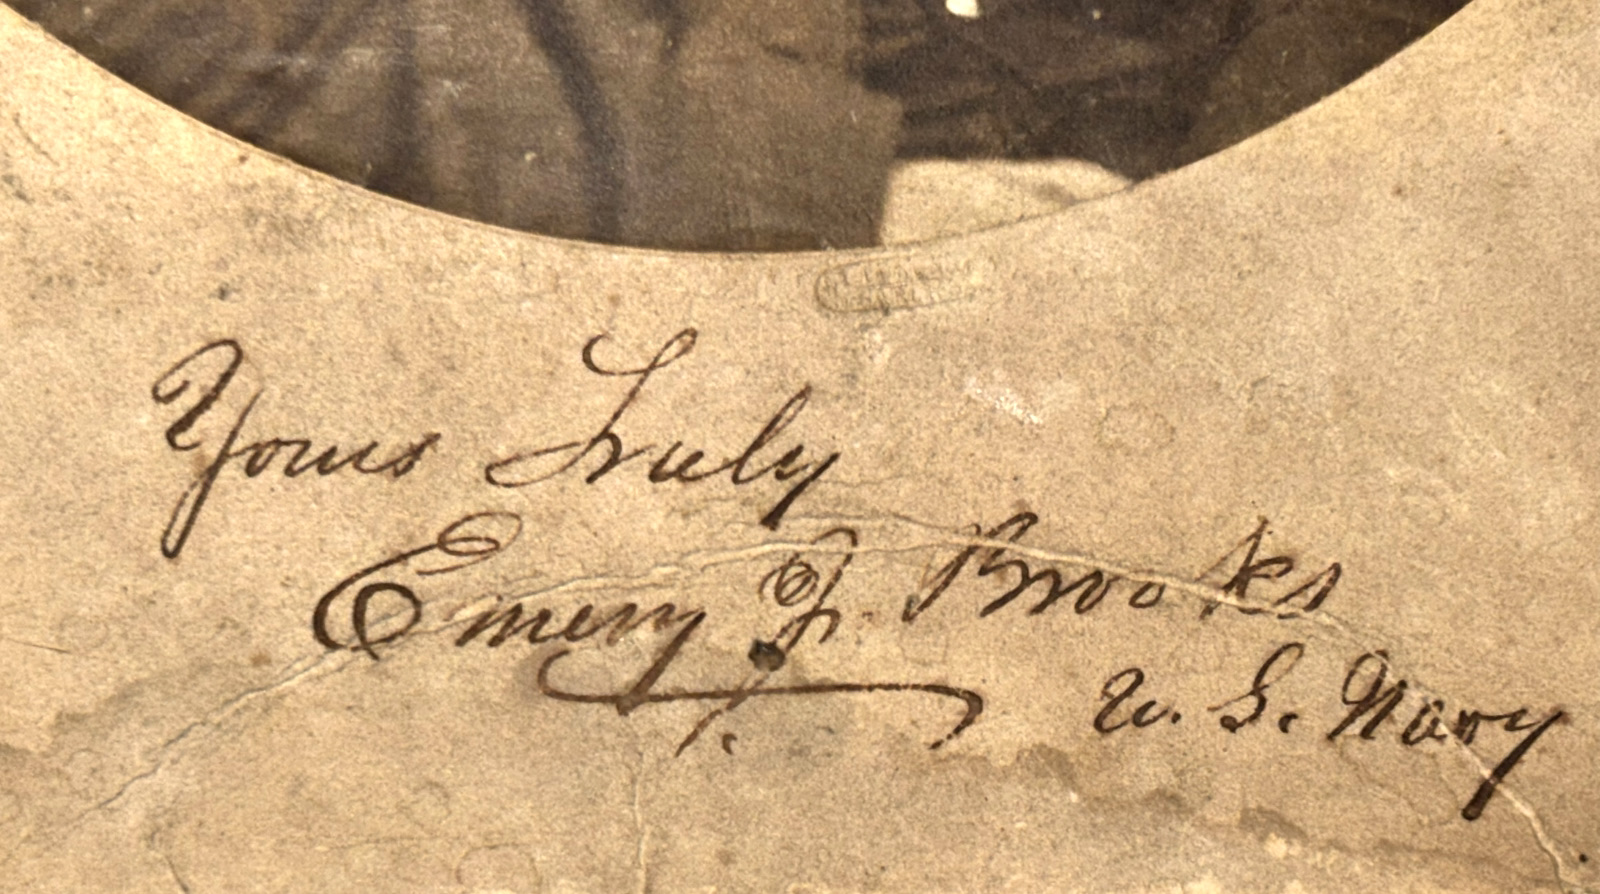 Yours Truly
Emery J. Brooks
U. S. Navy